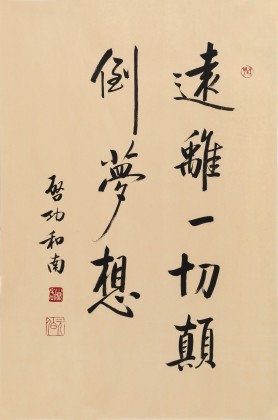 遠離一切顛
倒夢想
啓功和南